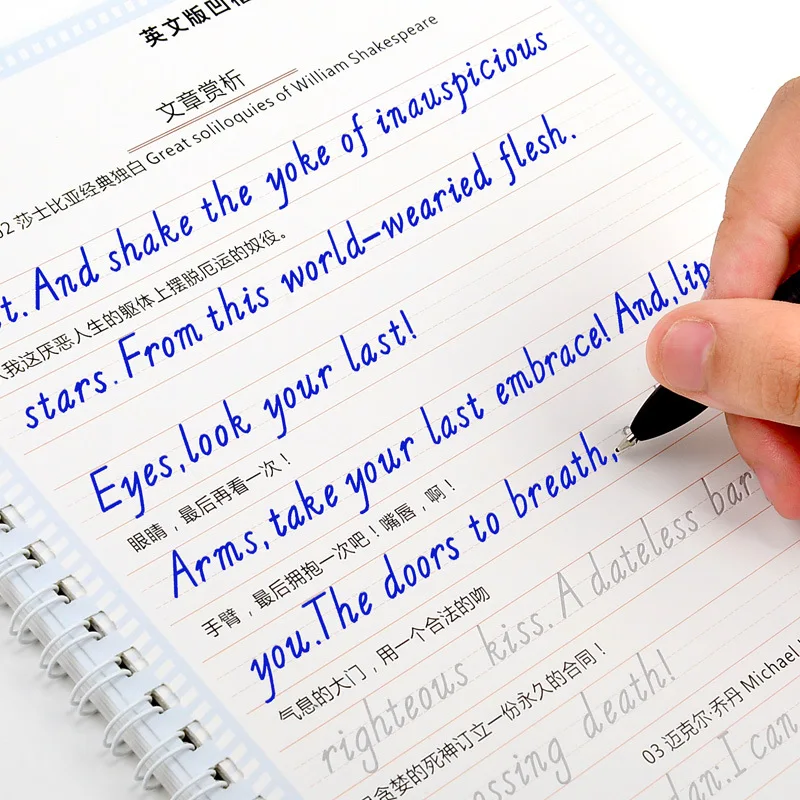 英文版凹
文章赏析
02 莎士比亚经典独白 Great soliloquies of William Shakespeare
t. And shake the yoke of inauspicious
我这厌恶人生的躯体上摆脱厄运的奴役。
stars. From this world-wearied flesh.
Eyes, look your last!
眼睛，最后再看一次！
Arms, take your last embrace! And, lip
手臂，最后拥抱一次吧！嘴唇，啊！
you. The doors to breath,
气息的大门，用一个合法的吻
righteous kiss. A dateless bar
贪婪的死神订立一份永久的合同！
ossing death!
03 迈克尔·乔丹 Michael
dan: I can